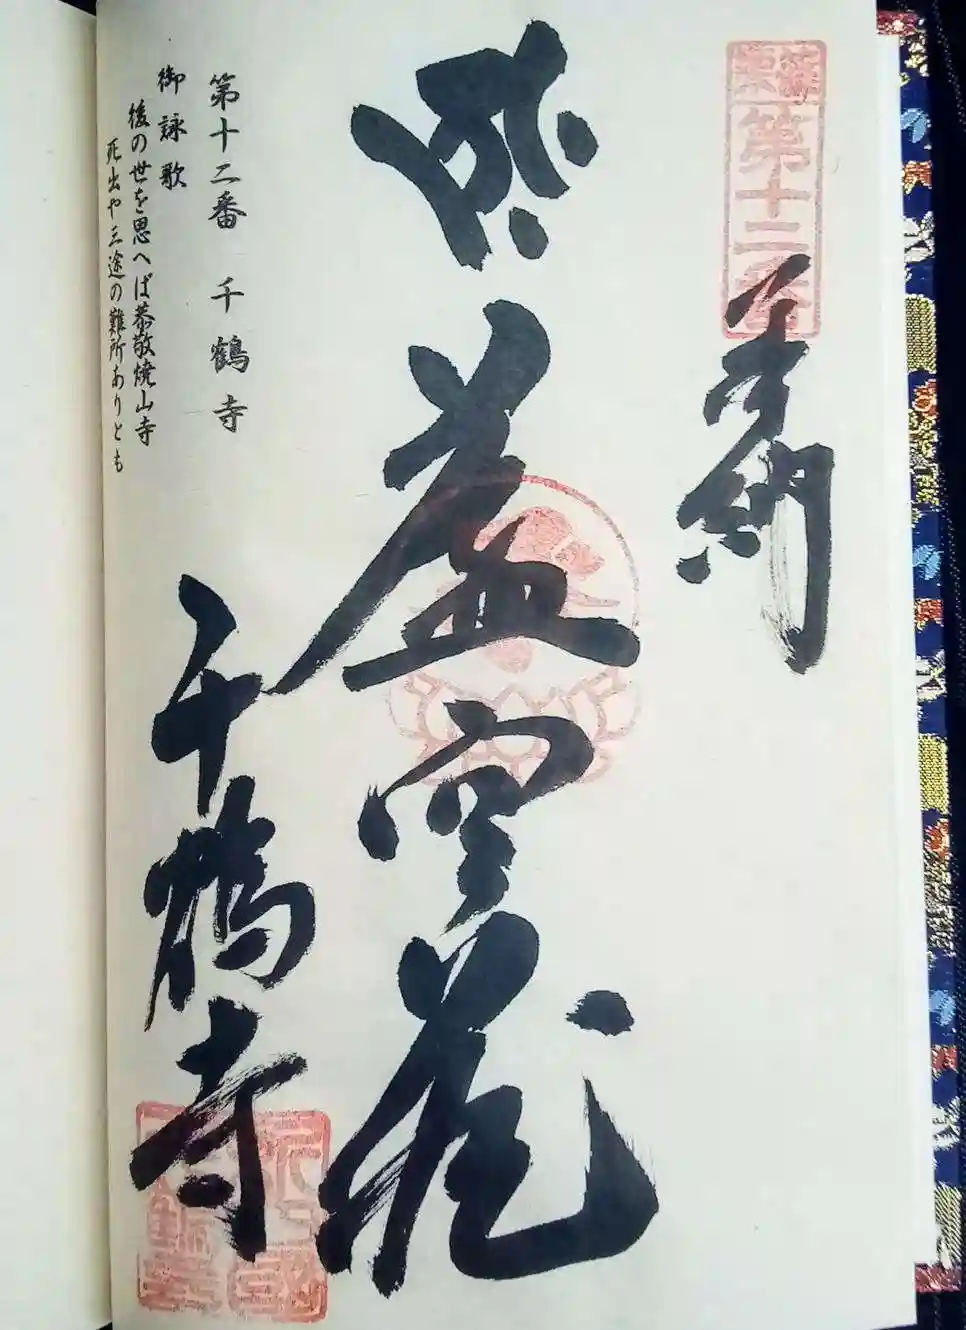 篠栗
第十二番
奉納
虚空蔵
千鶴寺
第十二番 千鶴寺
御詠歌
後の世を思へば恭敬焼山寺
死出や三途の難所ありとも